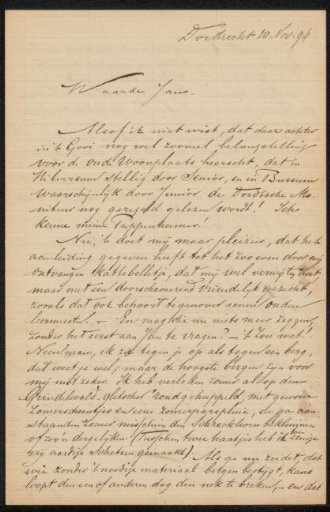 Dordrecht 20 Nov. 94
Waarde Jans.
Alsof ik niet wist, dat daar achter
in 't Gooi nog wel zooveel belangstelling
voor de oude Woonplaats heerscht, dat in
Hilversum stellig door Senior, en in Bussum
waarschijnlijk door Junior de Dordtsche Mo-
niteur nog geregeld gelezen wordt! Ik
kenne meine Pappenheimer.
Nu, 't doet mij maar pleizier, dat het
aanleiding gegeven heeft tot het zoo even door mij
ontvangen kattebelletje, dat mij wel verwijtend
maar met een doorschemerend vriendelijk gezicht,
zooals dat ook behoort tegenover een ouden
leermeester. — En mag die nu niets meer zeggen,
zonder het eerst aan Jan te vragen? — 't Zou wat!
Neen man, ik zie tegen je op als tegen een berg,
dat weet je wel; maar de hoogste bergen zijn voor
mij niet zeker. Ik heb verleden zomer al op den
Grindelwald gletscher rondgekuierd, met gewone
zomerschoentjes en eene zomerparapluie, en ga aan-
staanden zomer misschien den Schreckhorn beklimmen
of zoo'n dergelijken (Tusschen twee haakjes heb ik eenige
vrij aardige schetsen gemaakt). Als ge nu zeidet, dat
wie zonder 't noodige materiaal bergen bestijgt, kans
loopt den een of anderen dag den nek te breken, — en dat